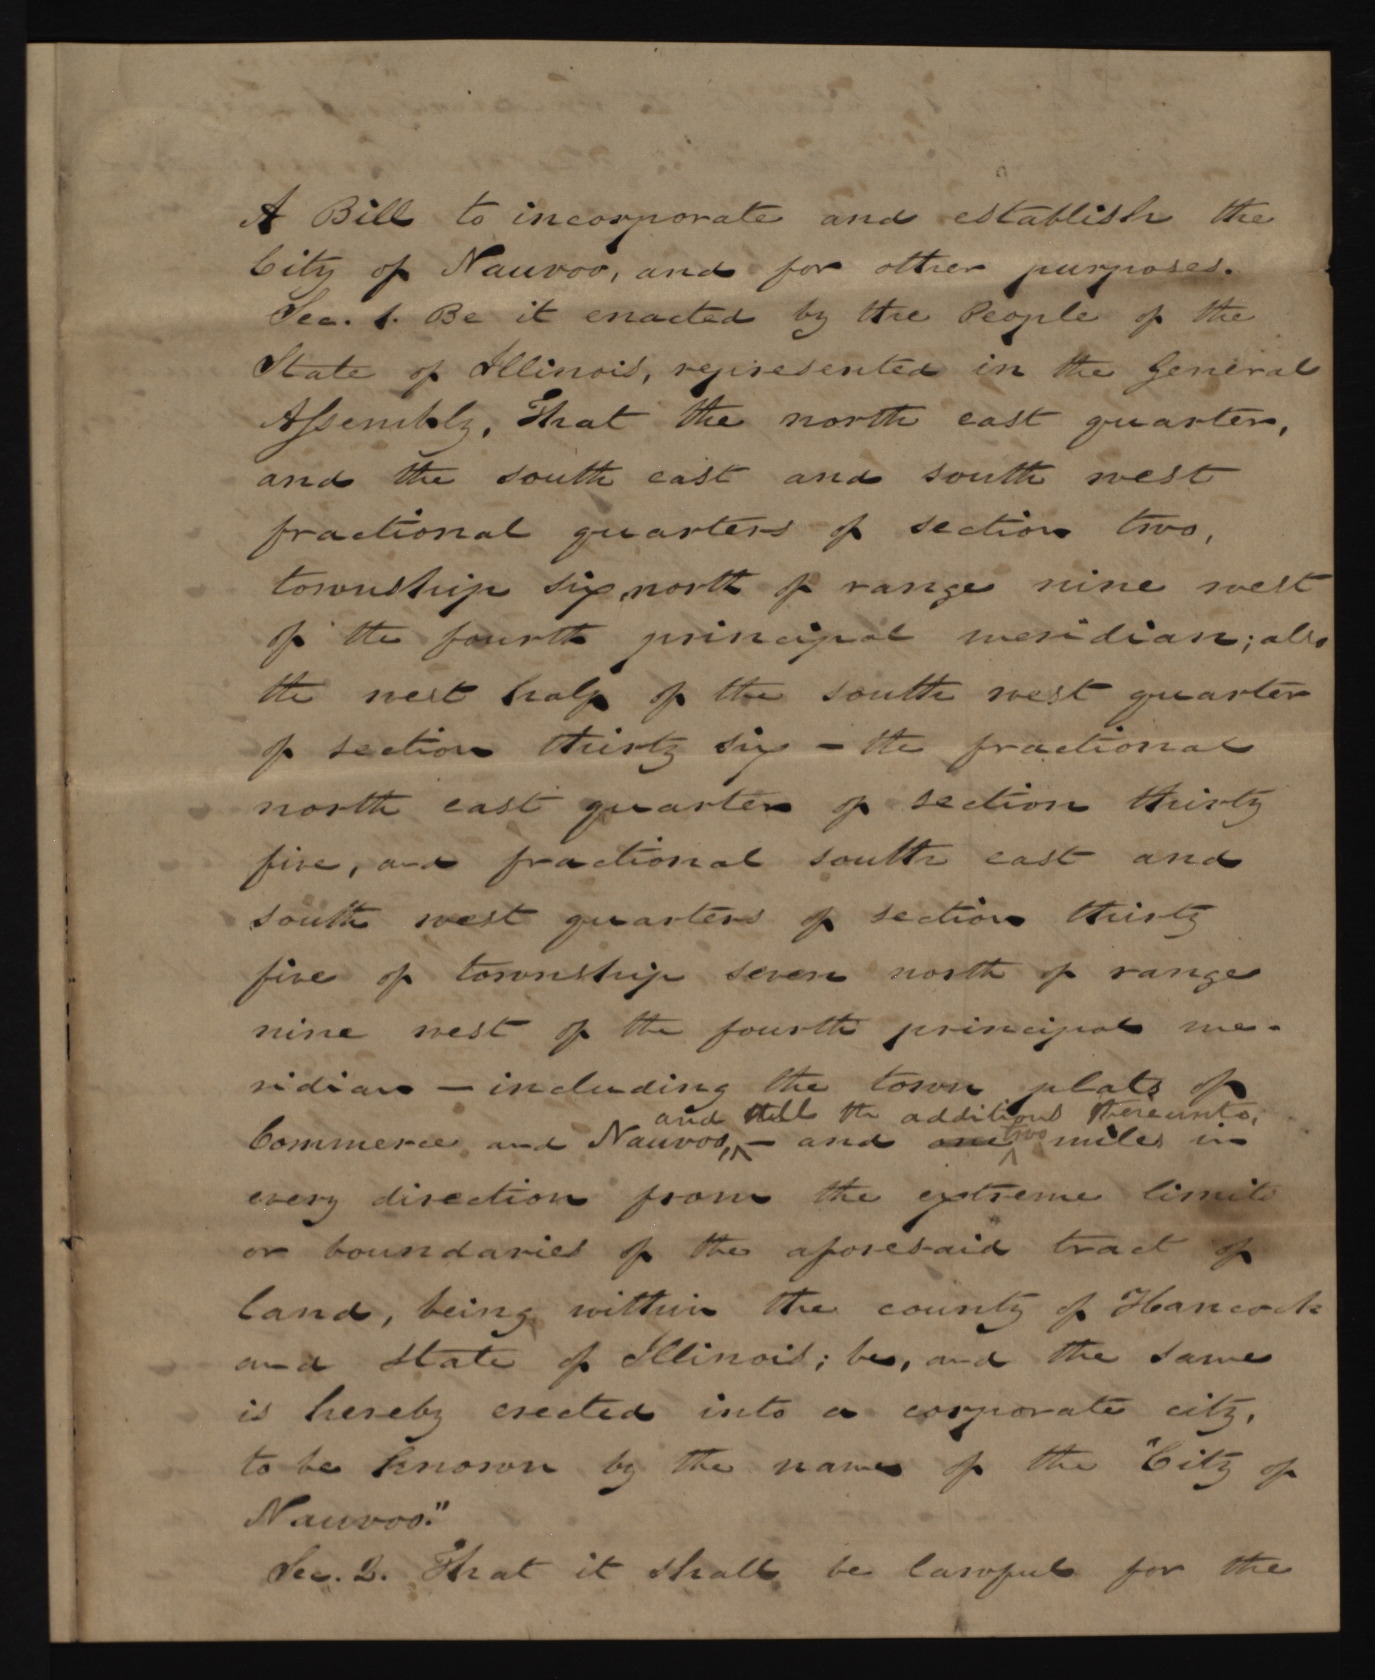 A Bill to incorporate and establish the
City of Nauvoo, and for other purposes.
Sec. 1. Be it enacted by the People of the
State of Illinois, represented in the General
Assembly, That the north east quarter,
and the south east and south west
fractional quarters of section two,
township six, north of range nine west
of the fourth principal meridian; also
the west half of the south west quarter
of section thirty six – the fractional
north east quarter of section thirty
five, and fractional south east and
south west quarters of section thirty
five of township seven north of range
nine west of the fourth principal me-
ridian – including the town plats of
and the additions thereunto,
Commerce and Nauvoo, ^ – and one ^ two miles in
every direction from the extreme limits
or boundaries of the aforesaid tract of
land, being within the county of Hancock
and State of Illinois; be, and the same
is hereby erected into a corporate city,
to be known by the name of the "City of
Nauvoo."
Sec. 2. That it shall be lawful for the